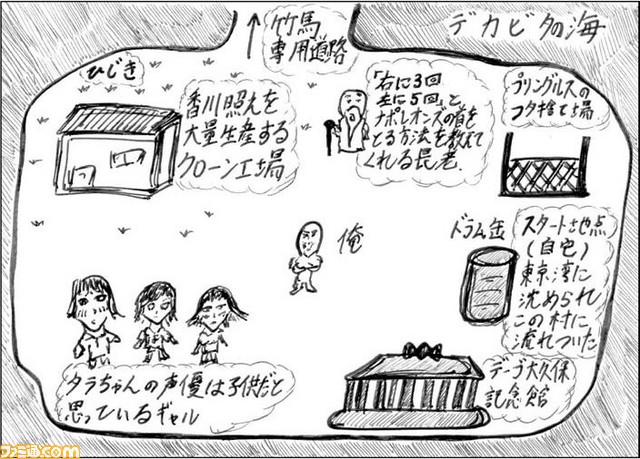 竹馬
専用道路
デカビタの海
ひじき
香川照之を
大量生産する
クローン工場
「右に3回
左に5回」と、
ナポレオンズの首を
とる方法を教えて
くれる長老
プリングルスの
フタ捨て場
俺
ドラム缶
スタート地点
(自宅)
東京湾に
沈められ
この村に
流れついた
タラちゃんの声優は子供だと
思っているギャル
デーブ大久保
記念館
ファミ通.com